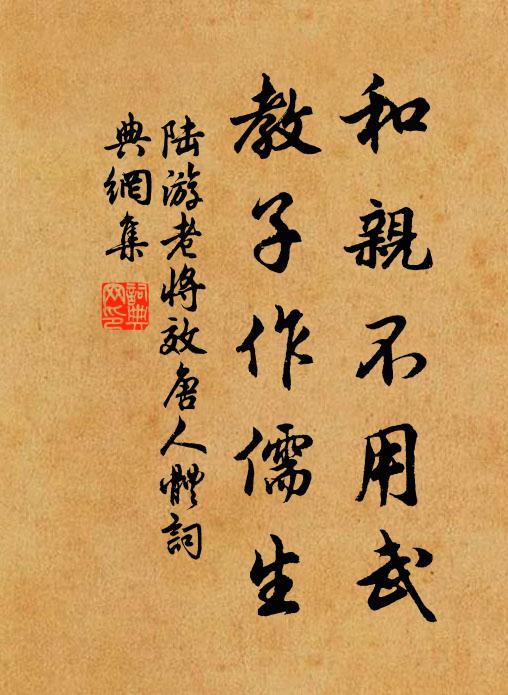 和親不用武
教子作儒生
陸游老將效唐人體詞
典網集
詞典網印